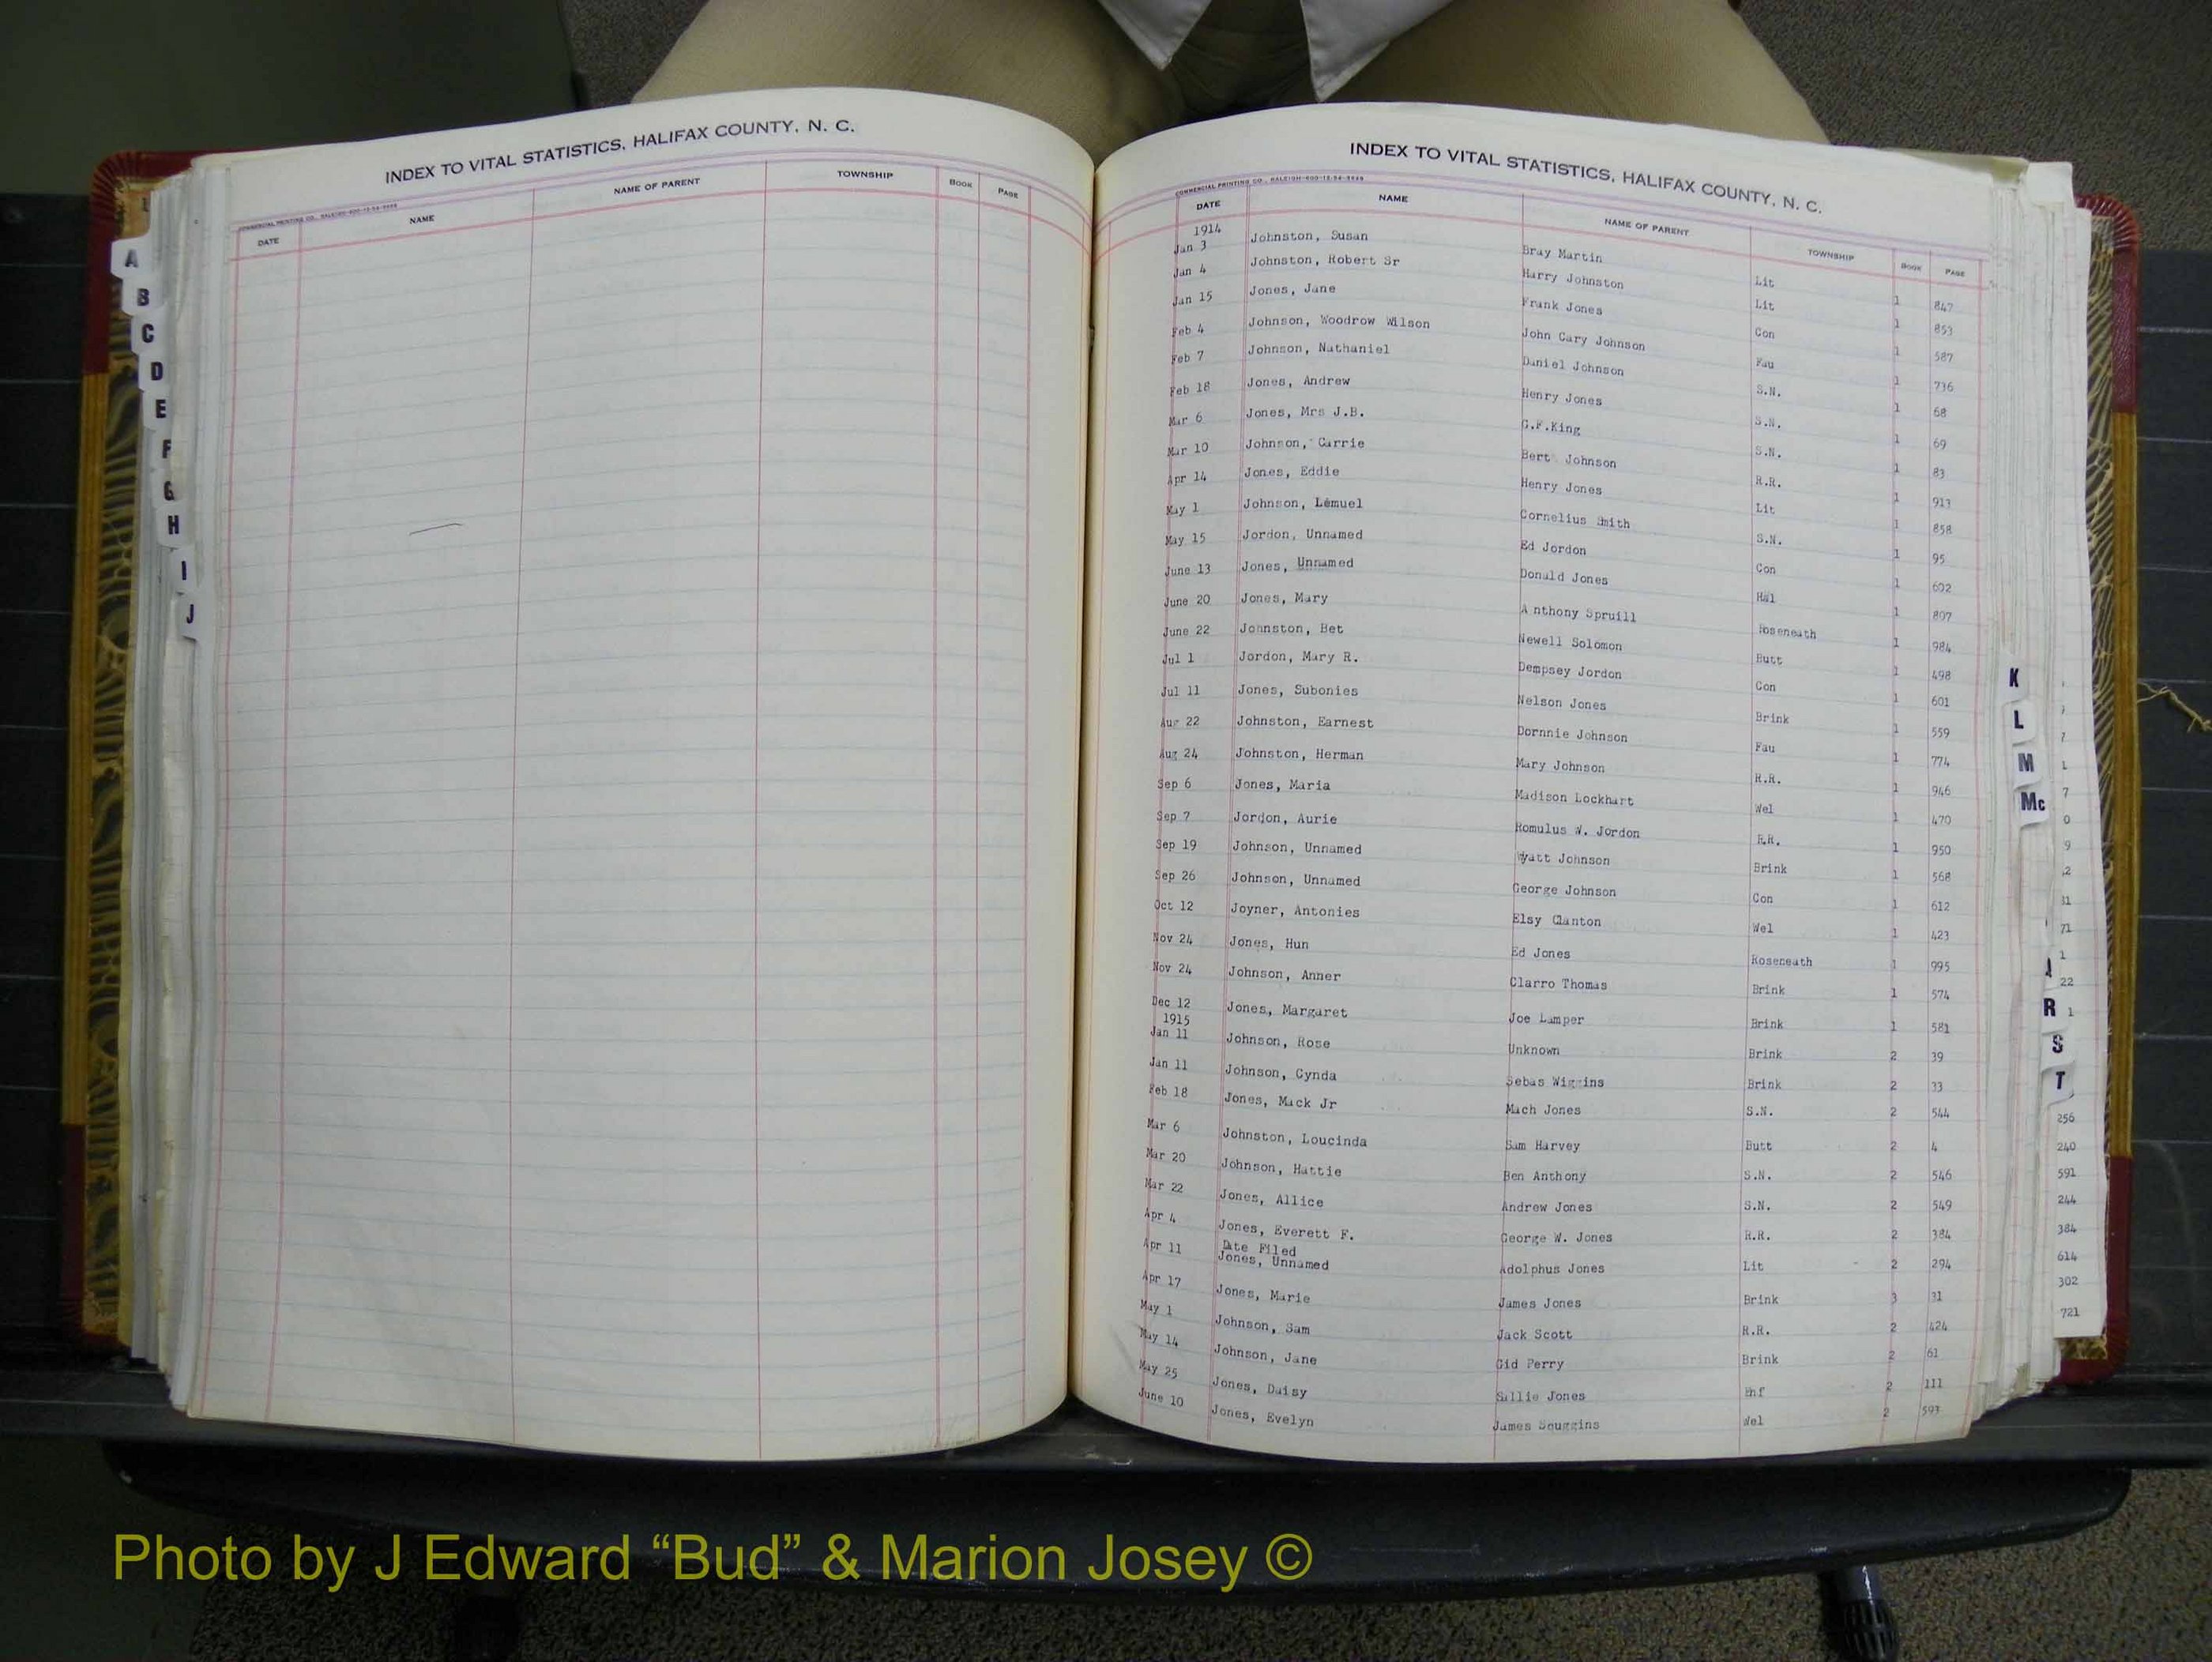 INDEX TO VITAL STATISTICS, HALIFAX COUNTY, N. C.
COMMERCIAL PRINTING CO., RALEIGH
DATE NAME NAME OF PARENT TOWNSHIP BOOK PAGE
A
B
C
D
E
F
G
H
I
J
INDEX TO VITAL STATISTICS, HALIFAX COUNTY, N. C.
COMMERCIAL PRINTING CO., RALEIGH
DATE NAME NAME OF PARENT TOWNSHIP BOOK PAGE
1914
Jan 3 Johnston, Susan Bray Martin Lit 1 847
Jan 4 Johnston, Robert Sr Harry Johnston Lit 1 853
Jan 15 Jones, Jane Frank Jones Con 1 587
Feb 4 Johnson, Woodrow Wilson John Cary Johnson Fau 1 736
Feb 7 Johnson, Nathaniel Daniel Johnson S.N. 1 68
Feb 18 Jones, Andrew Henry Jones S.N. 1 69
Mar 6 Jones, Mrs J.B. G.F.King S.N. 1 83
Mar 10 Johnson, Carrie Bert Johnson R.R. 1 913
Apr 14 Jones, Eddie Henry Jones Lit 1 858
May 1 Johnson, Lemuel Cornelius Smith S.N. 1 95
May 15 Jordon, Unnamed Ed Jordon Con 1 602
June 13 Jones, Unnamed Donald Jones Hal 1 807
June 20 Jones, Mary Anthony Spruill Roseneath 1 984
June 22 Johnston, Bet Newell Solomon Butt 1 498
Jul 1 Jordon, Mary R. Dempsey Jordon Con 1 601
Jul 11 Jones, Subonies Nelson Jones Brink 1 559
Aug 22 Johnston, Earnest Dornnie Johnson Fau 1 774
Aug 24 Johnston, Herman Mary Johnson R.R. 1 946
Sep 6 Jones, Maria Madison Lockhart Wel 1 470
Sep 7 Jordon, Aurie Romulus W. Jordon R.R. 1 950
Sep 19 Johnson, Unnamed Wyatt Johnson Brink 1 568
Sep 26 Johnson, Unnamed George Johnson Con 1 612
Oct 12 Joyner, Antonies Elsy Clanton Wel 1 423
Nov 24 Jones, Hun Ed Jones Roseneath 1 995
Nov 24 Johnson, Anner Clarro Thomas Brink 1 574
Dec 12 Jones, Margaret Joe Lamper Brink 1 581
1915
Jan 11 Johnson, Rose Unknown Brink 2 39
Jan 11 Johnson, Cynda Sebas Wiggins Brink 2 33
Feb 18 Jones, Mack Jr Mach Jones S.N. 2 544
Mar 6 Johnston, Loucinda Sam Harvey Butt 2 4
Mar 20 Johnson, Hattie Ben Anthony S.N. 2 546
Mar 22 Jones, Allice Andrew Jones S.N. 2 549
Apr 4 Jones, Everett F. George W. Jones R.R. 2 384
Date Filed
Apr 11 Jones, Unnamed Adolphus Jones Lit 2 294
Apr 17 Jones, Marie James Jones Brink 3 31
May 1 Johnson, Sam Jack Scott R.R. 2 424
May 14 Johnson, Jane Gid Perry Brink 2 61
May 25 Jones, Daisy Sallie Jones Enf 2 111
June 10 Jones, Evelyn James Scuggins Wel 2 593
K
L
M
Mc
R
S
T
256
240
591
244
384
614
302
721
Photo by J Edward “Bud” & Marion Josey ©